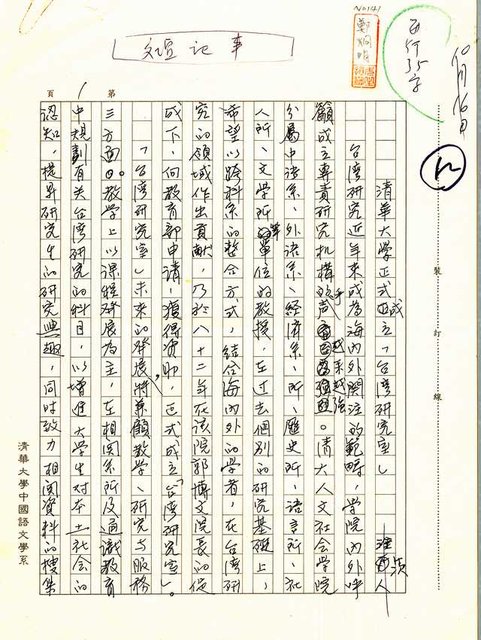 No141
鄭烱明
10月16日
每行35字
文壇記事
第 1 頁
清華大學正式成立「台灣研究室」
台灣研究近年來成為海內外關注的範疇，學院內外呼
籲成立專責研究機構的聲音越來越強。清大人文社會學院
分屬中語系、外語系、經濟系、所、歷史所、語言所、社
人所、文學所等單位的教授，在過去個別的研究基礎上，
希望以跨科系的整合方式，結合海內外的學者，在台灣研
究的領域作出貢獻，乃於八十二年在該院郭博文院長的促
成下，向教育部申請，獲得資助，正式成立「台灣研究室」。
「台灣研究室」未來的發展將兼顧教學、研究與服務
三方面。教學上以課程發展為主，在相關系所及通識教育
中規劃有关台灣研究的科目，以增進大學生對本土社會的
認知，提昇研究生的研究興趣，同時致力相関資料的搜集
裝訂線
清華大學中國語文學系